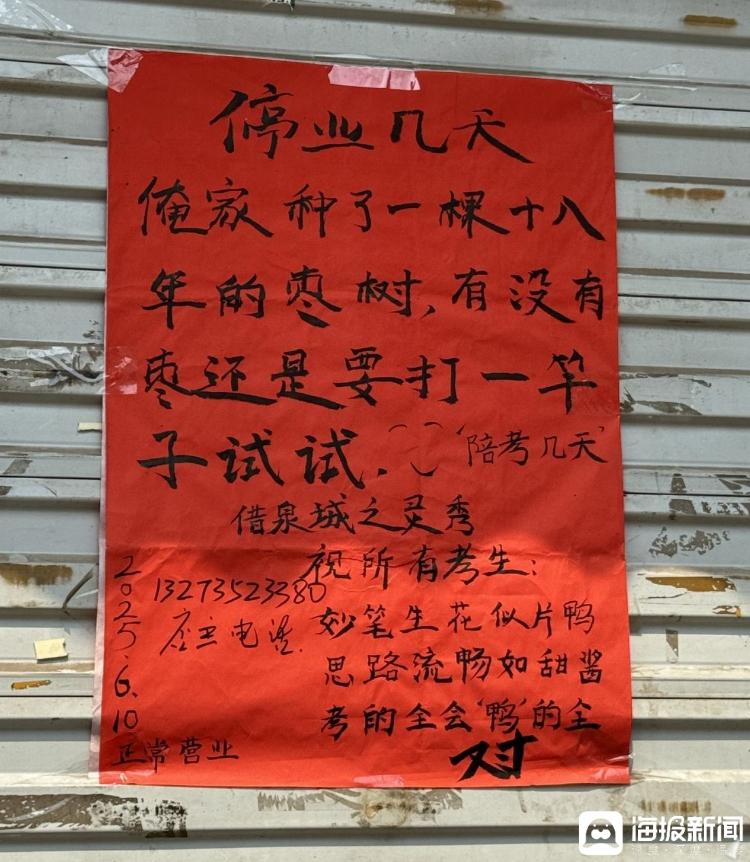 停业几天
俺家种了一棵十八
年的枣树,有没有
枣还是要打一竿
子试试.
'陪考几天'
借泉城之灵秀
祝所有考生:
妙笔生花似片鸭
思路流畅如甜酱
考的全会'鸭'的全
对
13273523380
店主电话.
2025.6.10
正常营业
海报新闻